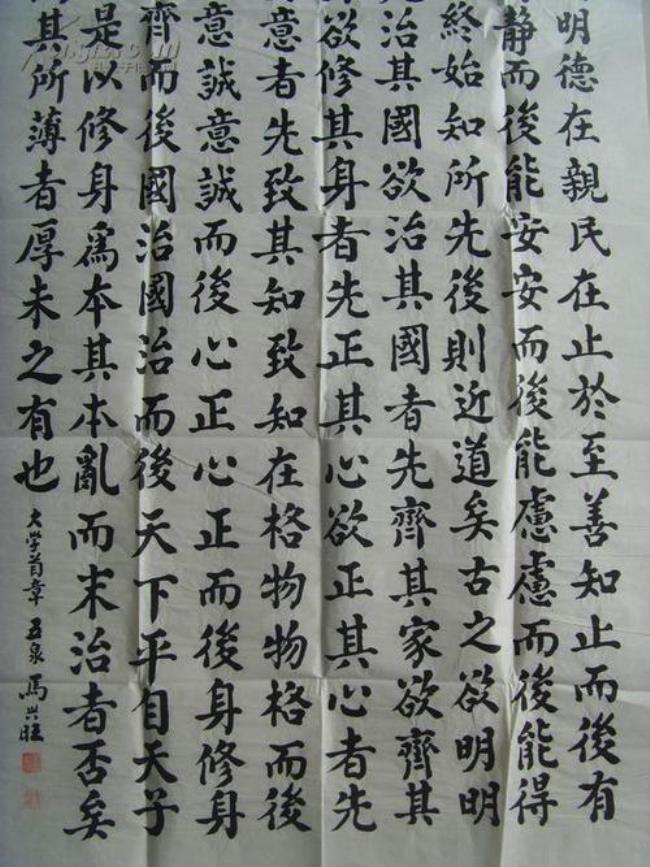 明德在親民在止於至善知止而後有
靜而後能安安而後能慮慮而後能得
終始知所先後則近道矣古之欲明明
治其國欲治其國者先齊其家欲齊其
欲修其身者先正其心欲正其心者先
意者先致其知致知在格物物格而後
意誠意誠而後心正心正而後身修身
齊而後國治國治而後天下平自天子
是以修身爲本其本亂而末治者否矣
其所薄者厚未之有也
大学首章 五泉 馬兴旺